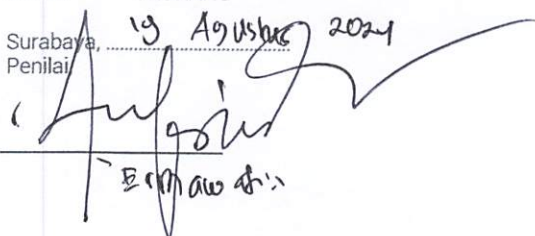 Surabaya, 19 Agustus 2024
Penilai
Ermawati